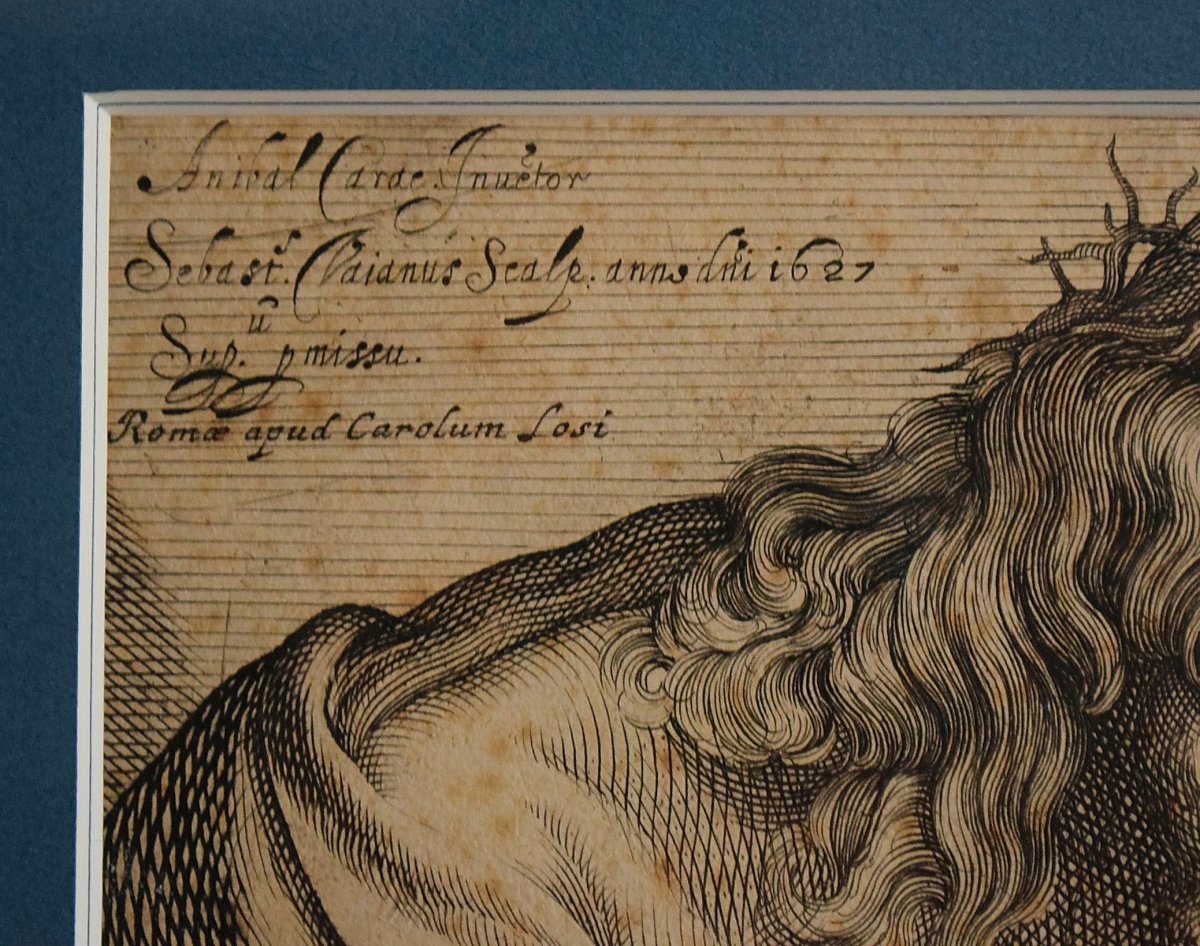 Anibal Carac. Invẽtor
Sebastˢ. Vaianus Scalp. anno dñi 1627
Supᵘ. pmissu.
Romæ apud Carolum Losi